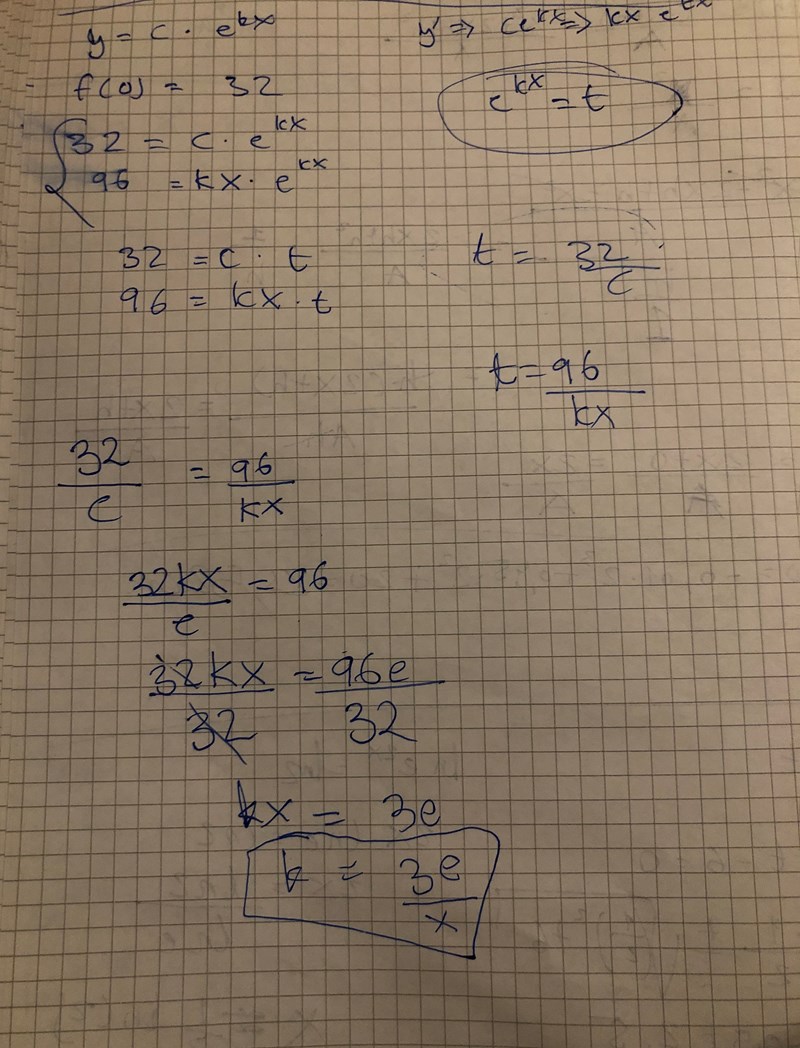 y = c · e^kx
y' => ce^kx => kx · e^kx
f(0) = 32
e^kx = t
32 = c · e^kx
96 = kx · e^kx
32 = c · t
t = 32/c
96 = kx · t
t = 96/kx
32/c = 96/kx
32kx/c = 96
32kx/32 = 96c/32
kx = 3e
k = 3e/x